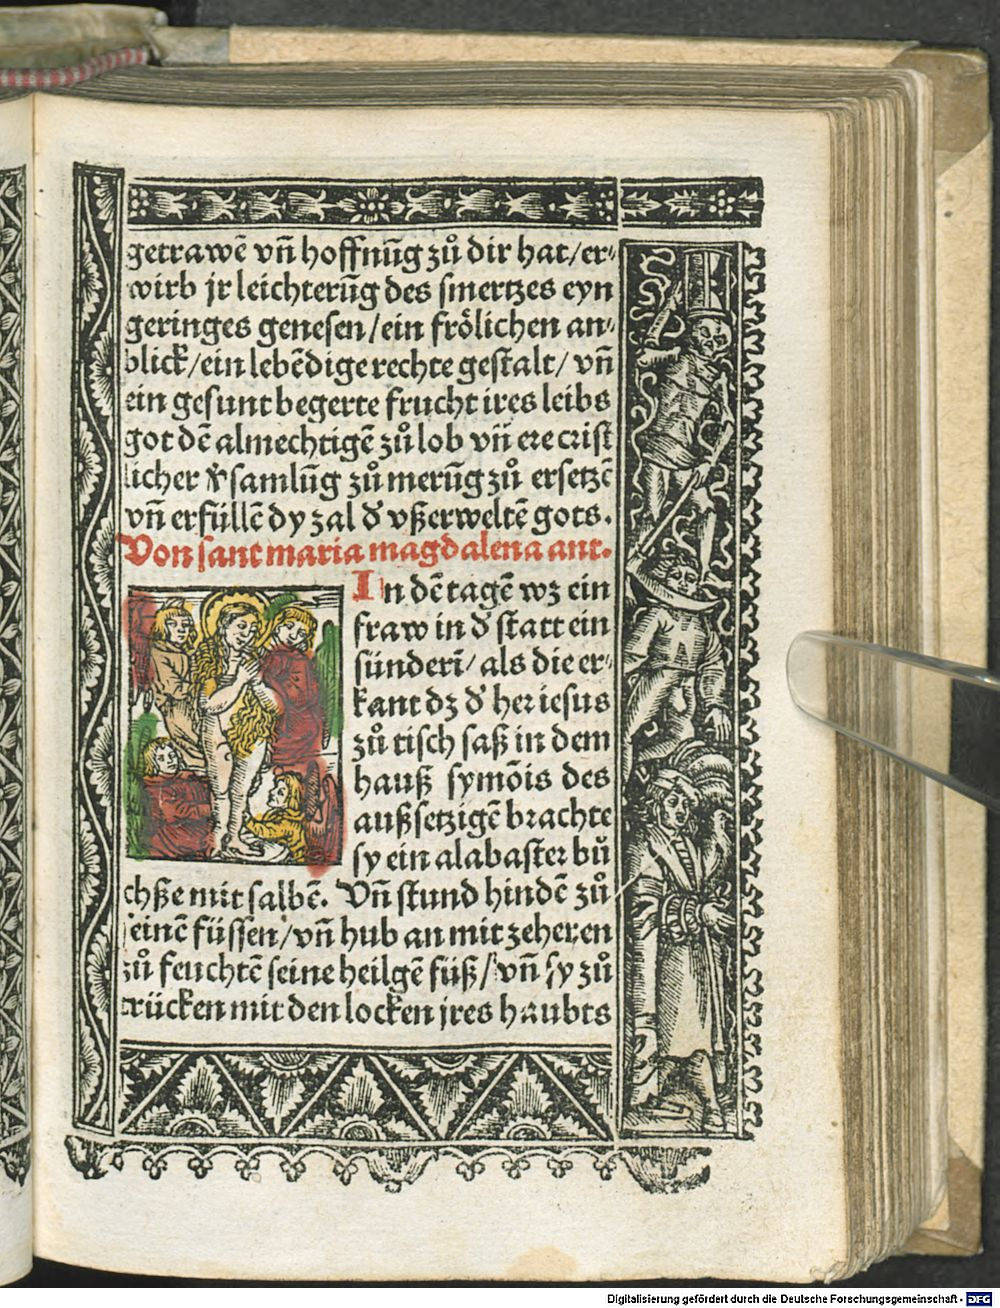 getrawē vñ hoffnūg zů dir hat/er⸗
wirb jr leichterūg des smertzes eyn
geringes genesen/ein frőlichen an⸗
blick/ein lebēdige rechte gestalt/vñ
ein gesunt begerte frucht ires leibs
got dē almechtigē zů lob vñ ere crist
licher v̕samlūg zů merūg zů ersetzē
vñ erfüllē dy zal d̕ vßerweltē gots.
Von sant maria magdalena ant.
In dē tagē wz ein
fraw in d̕ statt ein
sünderī/als die er⸗
kant dz d̕ her iesus
zů tisch saß in dem
hauß symōis des
außsetzigē brachte
sy ein alabaster bů
chße mit salbē. Vñ stund hindē zů
seinē füssen/vñ hub an mit zeheren
zů feuchtē seine heilgē füß/vñ sy zů
trücken mit den locken jres haubts
Digitalisierung gefördert durch die Deutsche Forschungsgemeinschaft - DFG